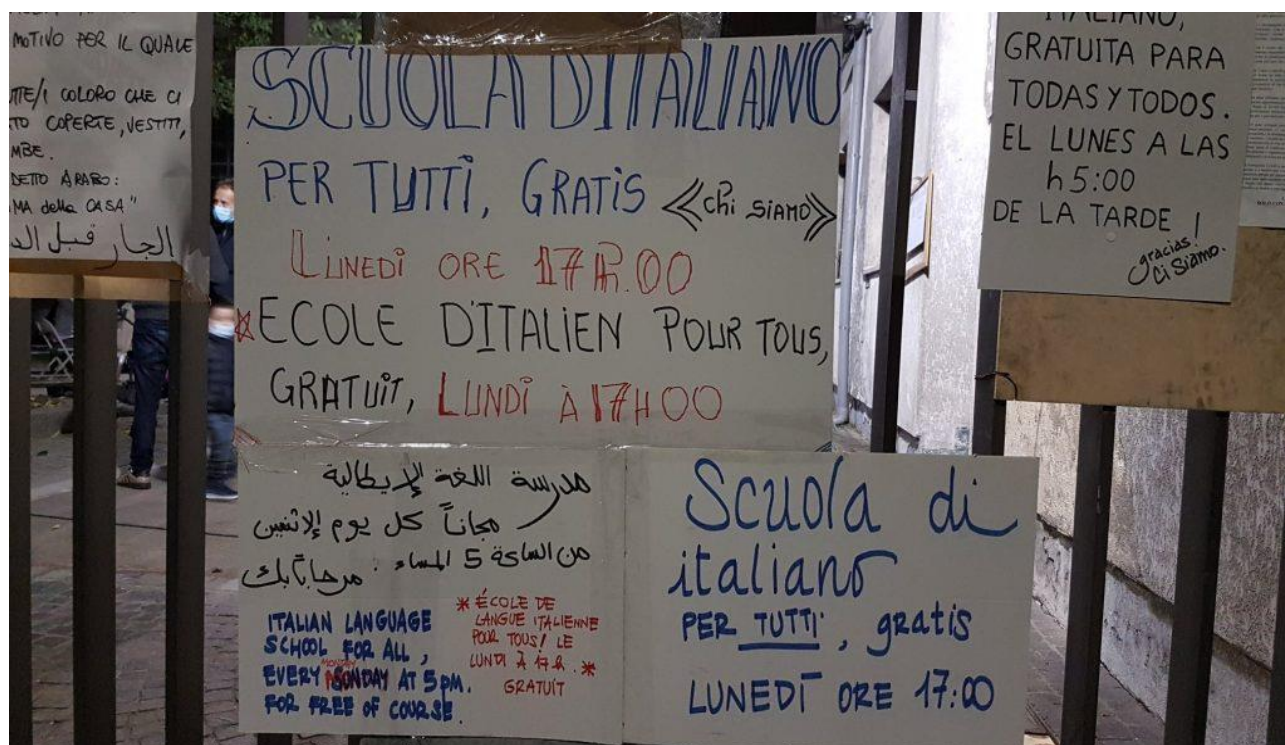 MOTIVO PER IL QUALE
COLORO CHE CI
COPERTE, VESTITI,
DETTO ARABO:
della CASA"
الجار قبل
SCUOLA D'ITALIANO
PER TUTTI, GRATIS «Chi SIAMO»
LUNEDÌ ORE 17h.00
*ECOLE D'ITALIEN POUR TOUS,
GRATUIT, LUNDI À 17H00
مدرسة اللغة الإيطالية
مجاناً كل يوم إلاثنين
من الساعة 5 المساء
ITALIAN LANGUAGE
SCHOOL FOR ALL,
EVERY MONDAY AT 5 PM.
FOR FREE OF COURSE.
* ÉCOLE DE
LANGUE ITALIENNE
POUR TOUS! LE
LUNDI À 17h. *
GRATUIT
Scuola di
italiano
PER TUTTI, gratis
LUNEDÌ ORE 17:00
ITALIANO,
GRATUITA PARA
TODAS Y TODOS.
EL LUNES A LAS
h 5:00
DE LA TARDE!
gracias!
Ci Siamo.